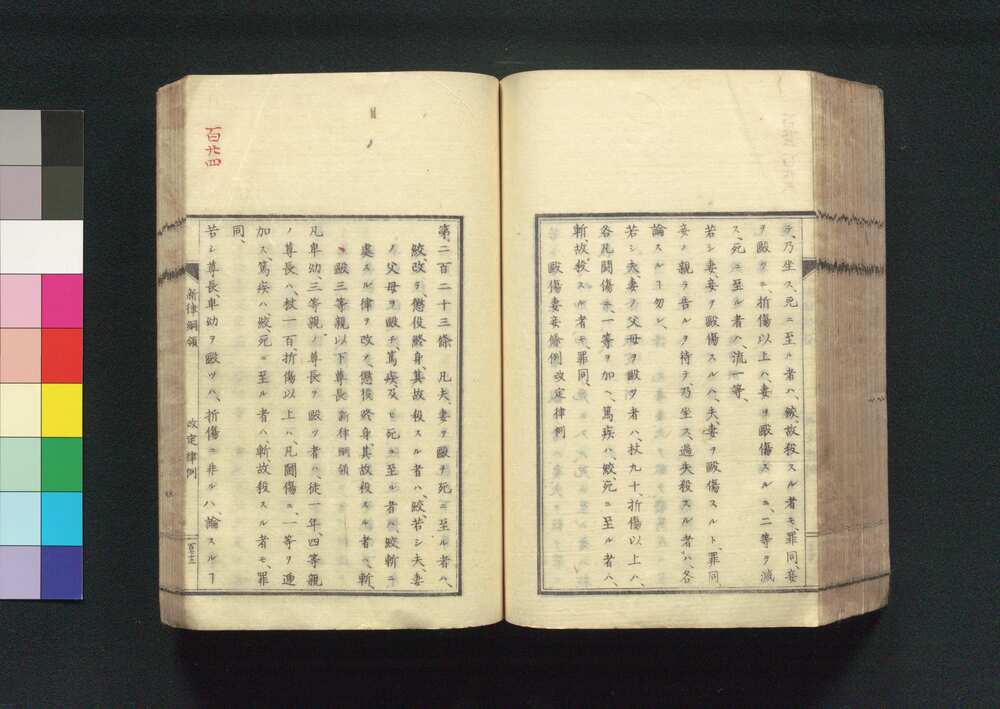 テ、乃坐ス、死ニ至ル者ハ、絞、故殺スル者モ、罪同、妾
ヲ毆ツニ、折傷以上ハ、妻ヲ毆傷スルニ、二等ヲ減
ス、死ニ至ル者ハ、流一等、
若シ妻、妾ヲ毆傷スルハ、夫、妻ヲ毆傷スルト、罪同、
妾ノ親ラ告ルヲ待テ、乃坐ス、過失殺スル者ハ、各
論スルヿ勿レ、
若シ夫、妻ノ父母ヲ毆ツ者ハ、杖九十、折傷以上ハ、
各凡鬪傷ニ、一等ヲ加ヘ、篤疾ハ、絞、死ニ至ル者ハ、
斬、故殺スル者モ、罪同、
毆傷妻妾條例 改定律例
第二百二十三條 凡夫、妻ヲ毆テ死ニ至ル者ハ、
絞改テ、懲役終身、其故殺スル者ハ、絞、若シ夫、妻
ノ父母ヲ毆チ、篤疾、及ヒ死ニ至ル者ハ、絞斬ニ
處スル律ヲ改テ、懲役終身、其故殺スル者ハ、斬、
毆三等親以下尊長 新律綱領
凡卑幼三等親ノ尊長ヲ毆ツ者ハ、徒一年、四等親
ノ尊長ハ、杖一百、折傷以上ハ、凡鬪傷ニ、一等ヲ遞
加ス、篤疾ハ、絞、死ニ至ル者ハ、斬、故殺スル者モ、罪
同、
若シ尊長、卑幼ヲ毆ツハ、折傷ニ非ルハ、論スルヿ
新律綱領 改定律例
百廿四